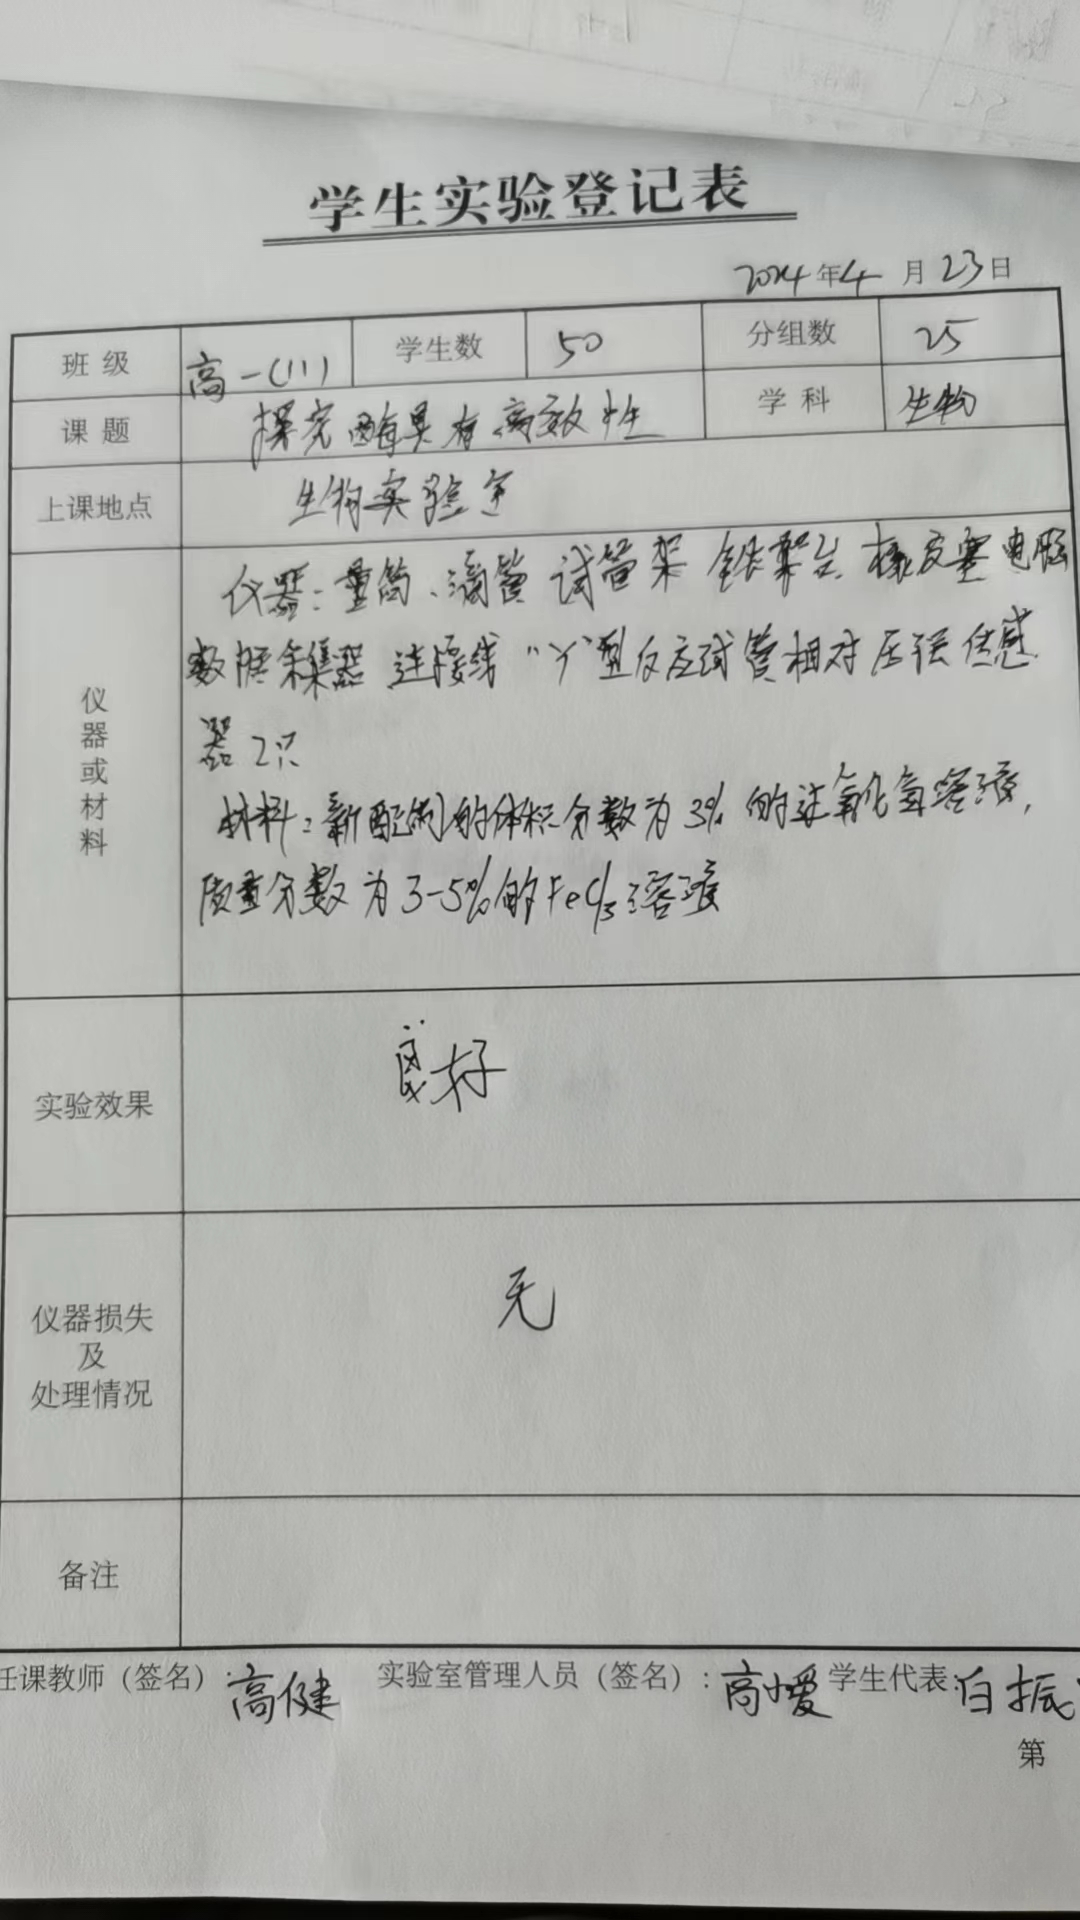 学生实验登记表
2024年4月23日
班级 高一(11) 学生数 50 分组数 25
课题 探究酶具有高效性 学科 生物
上课地点 生物实验室
仪器或材料
仪器：量筒、滴管 试管架 铁架台 橡皮塞 电脑
数据采集器 连接线 "Y"型反应试管相对压强传感
器2只
材料：新配制的体积分数为3%的过氧化氢溶液，
质量分数为3-5%的FeCl3溶液
实验效果 良好
仪器损失
及
处理情况
无
备注
任课教师（签名）：高健 实验室管理人员（签名）：高 学生代表：白振
第